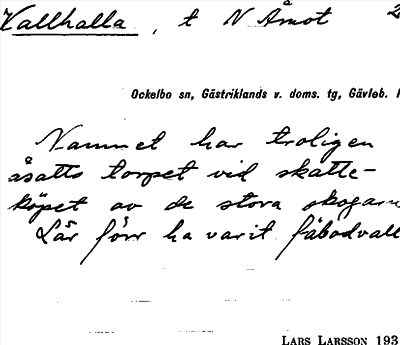 Vallhalla, t N Åmot 2
Ockelbo sn, Gästriklands v. doms. tg, Gävleb. l
Namnet har troligen
åsatts torpet vid skatte-
köpet av de stora skogarn
Lär förr ha varit fäbodvall
LARS LARSSON 193